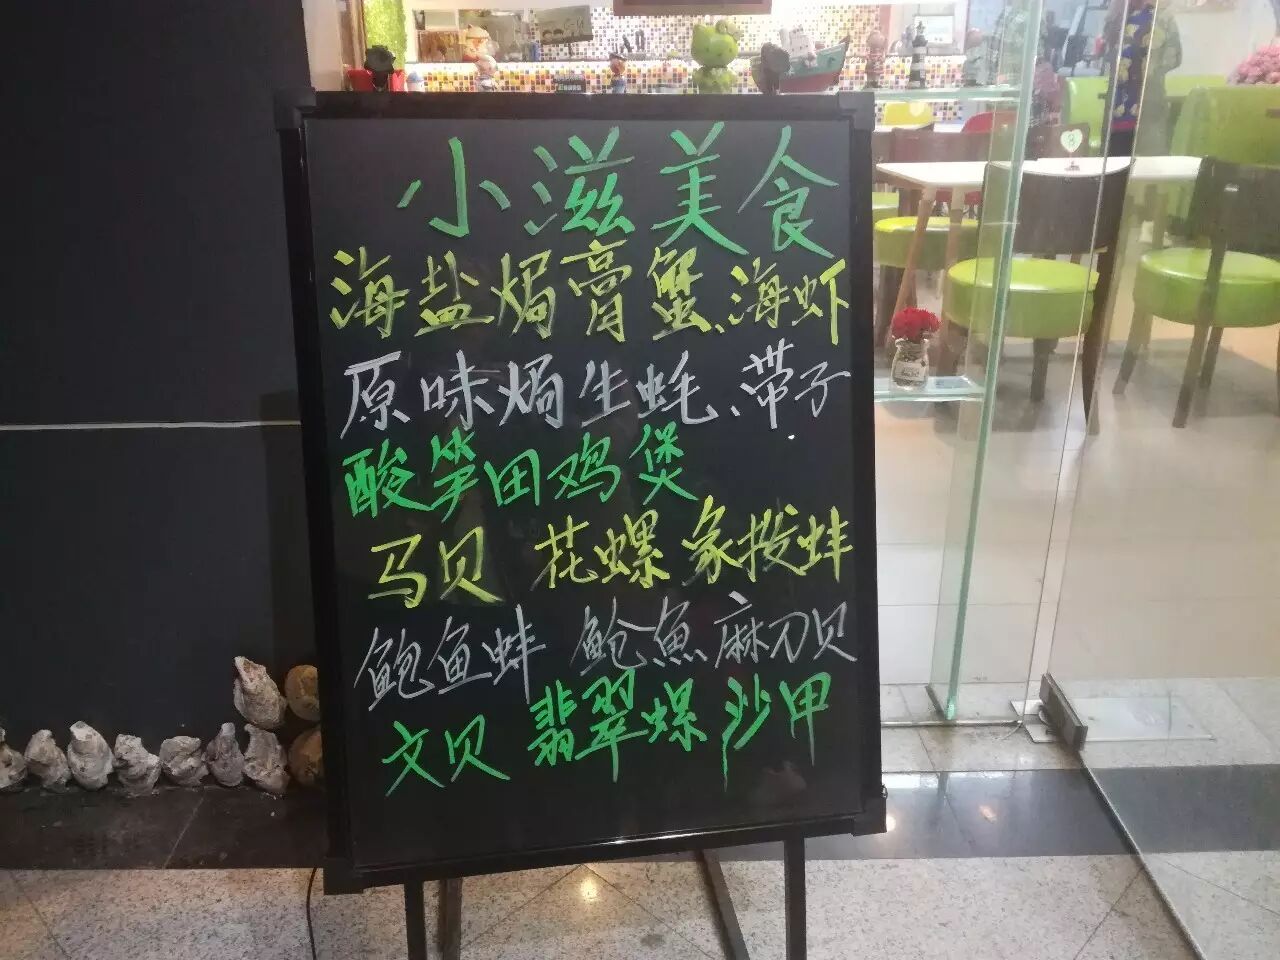 小滋美食
海盐焗膏蟹、海虾
原味焗生蚝、带子
酸笋田鸡煲
马贝 花螺 象拔蚌
鲍鱼蚌 鲍魚 麻刀贝
文贝 翡翠螺 沙甲